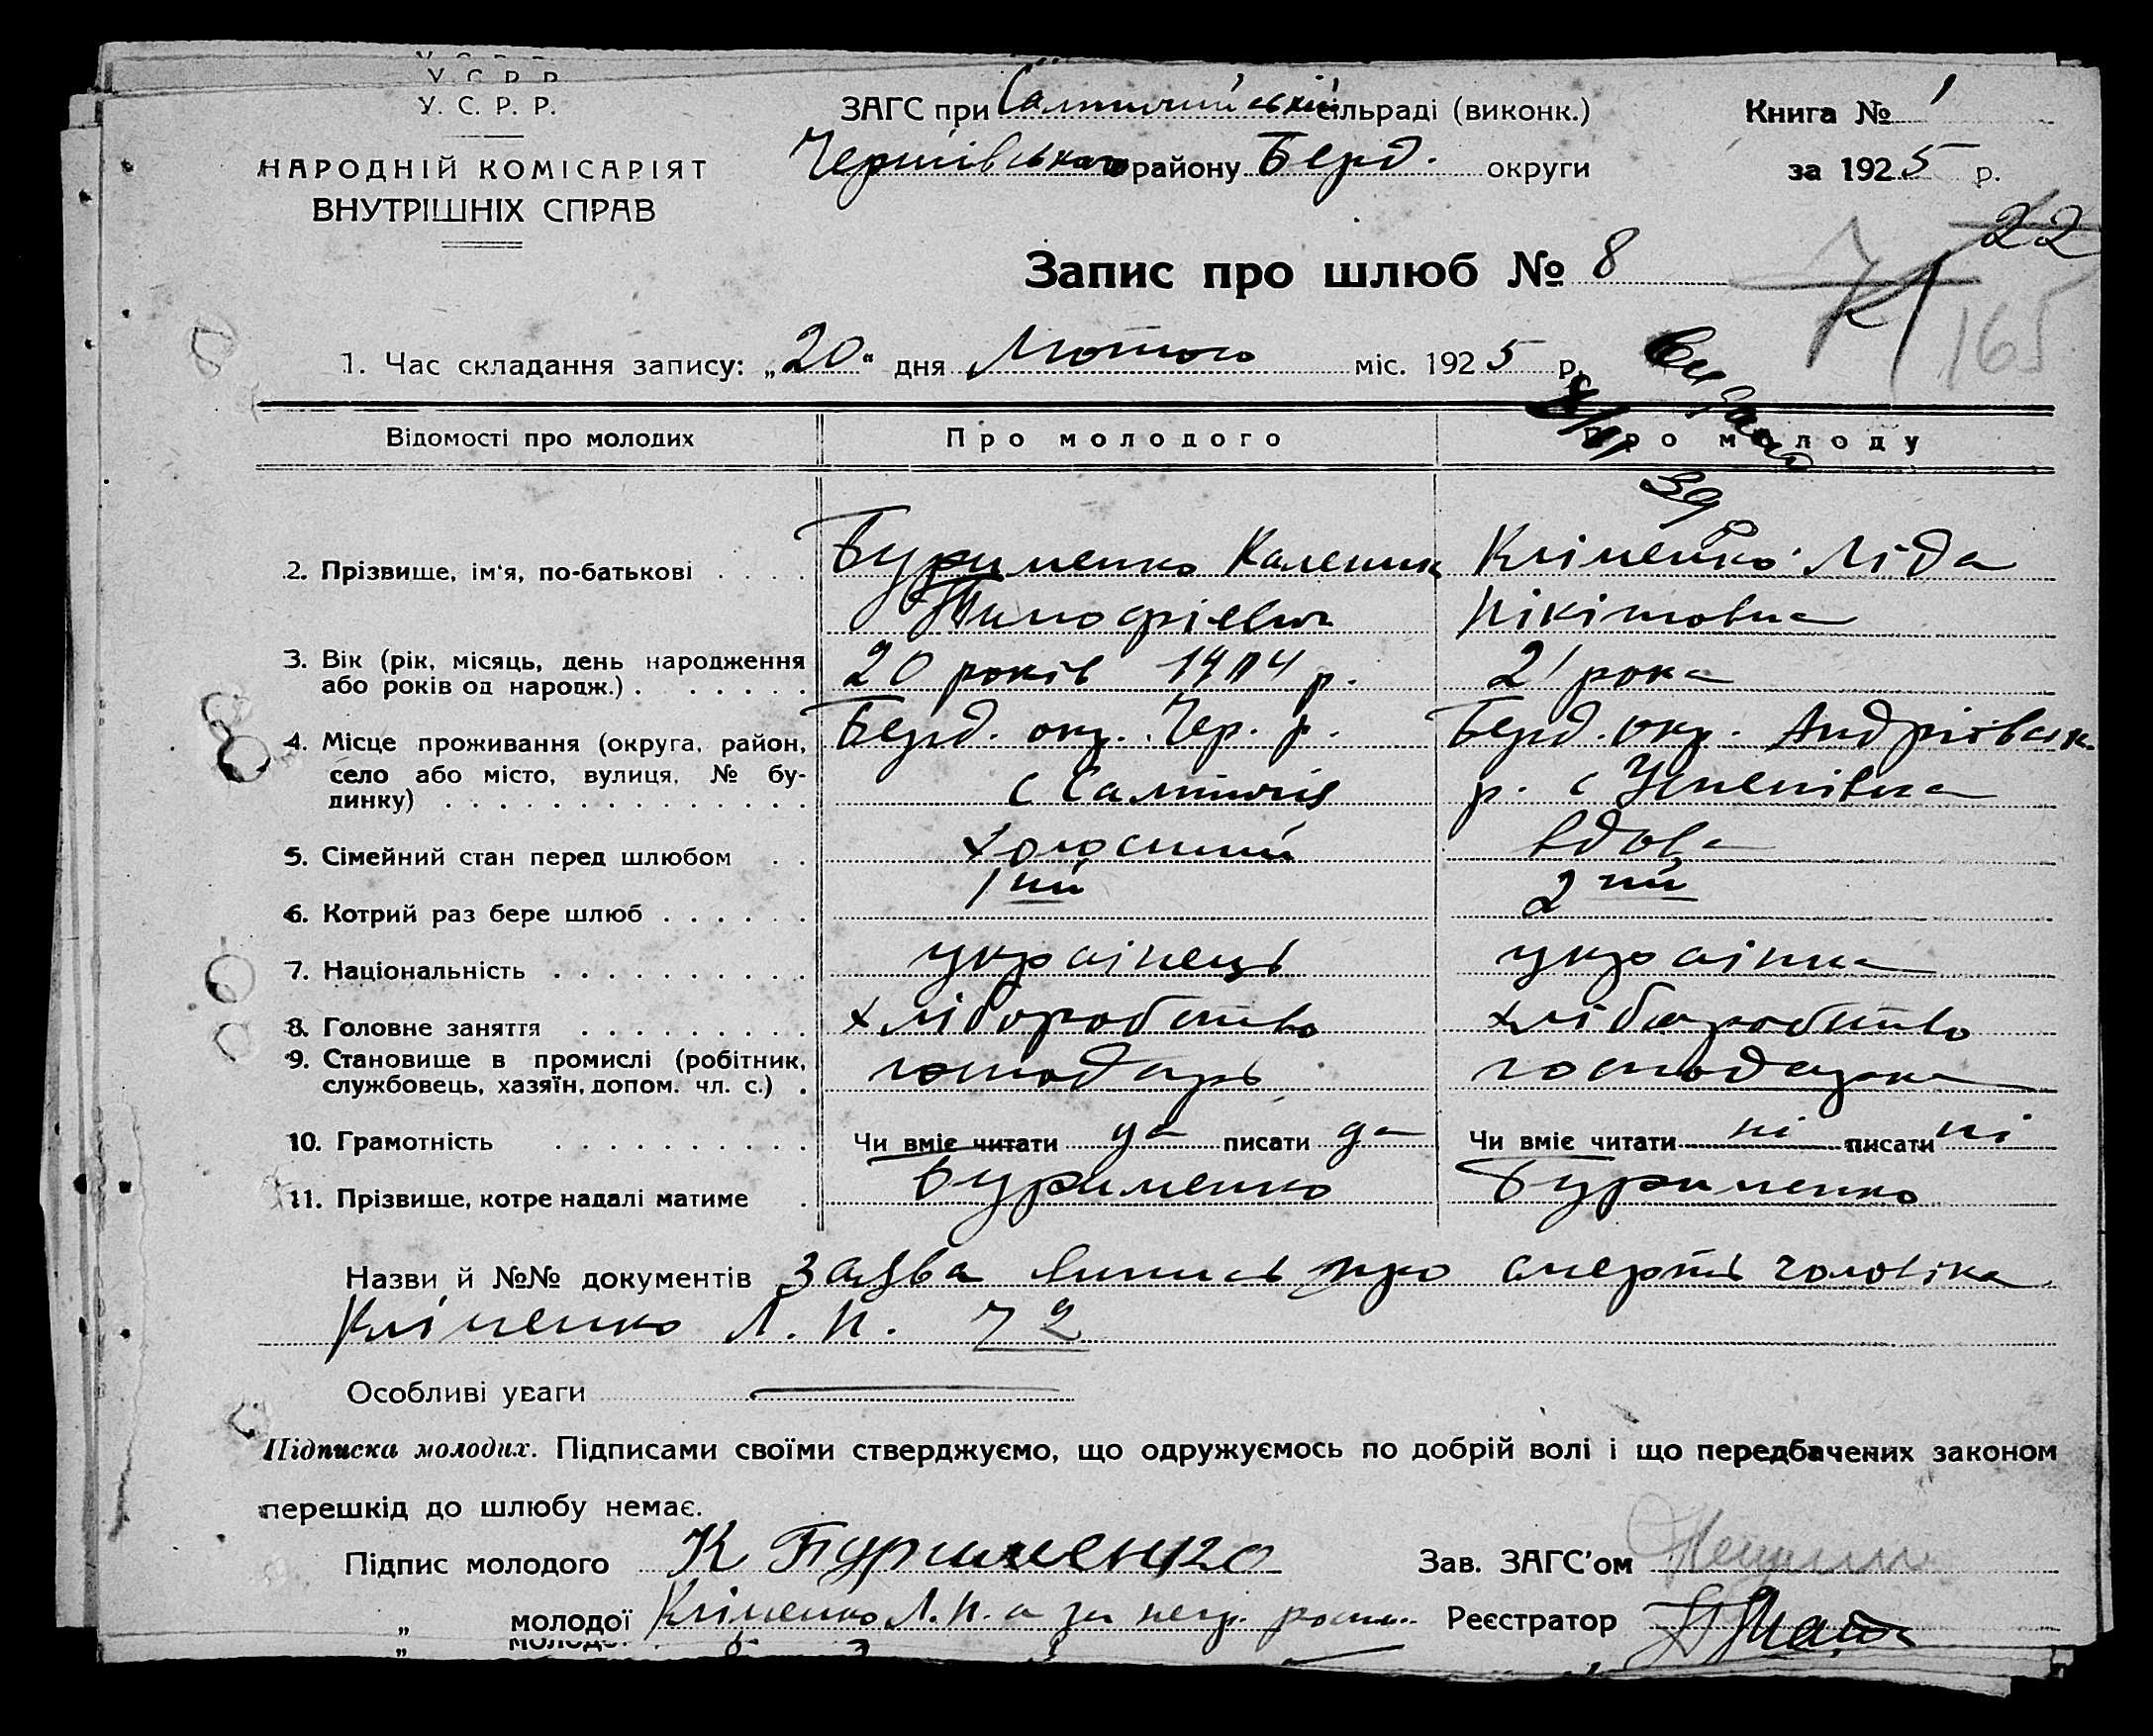 У. С. Р. Р.
У. С. Р. Р.
НАРОДНІЙ КОМІСАРІЯТ
ВНУТРІШНІХ СПРАВ
ЗАГС при Салтичийській сільраді (виконк.)
Чернівського району Берд. округи
Книга № 1
за 1925 р.
22
Запис про шлюб № 8
71
165
1. Час складання запису: „20“ дня Лютого міс. 1925 р.
Видано
39
Відомості про молодих Про молодого Про молоду
2. Прізвище, ім'я, по-батькові Бурименко Каленик Кліменко Ліда
Тимофієвич Нікітовна
3. Вік (рік, місяць, день народження 20 років 1904 р. 21 рока
або років од народж.)
4. Місце проживання (округа, район, Берд. окр. Чер. р. Берд. окр. Андрієвськ.
село або місто, вулиця, № бу- с Салтичія р. с Успенівка
динку)
5. Сімейний стан перед шлюбом холостий вдова
6. Котрий раз бере шлюб 1ий 2ий
7. Національність українець українка
8. Головне заняття хліборобство хліборобство
9. Становище в промислі (робітник, господарь господарка
службовець, хазяїн, допом. чл. с.)
10. Грамотність Чи вміє читати да писати да Чи вміє читати ні писати ні
11. Прізвище, котре надалі матиме Бурименко Бурименко
Назви й №№ документів Заява Випись про смерть чоловіка
Кліменко Л. Н. 72
Особливі уваги
Підписка молодих. Підписами своїми стверджуємо, що одружуємось по добрій волі і що передбачених законом
перешкід до шлюбу немає.
Підпис молодого К Бурименко Зав. ЗАГС'ом
„ молодої Кліменко Л. Н. а за негр. Реєстратор
„ молодої